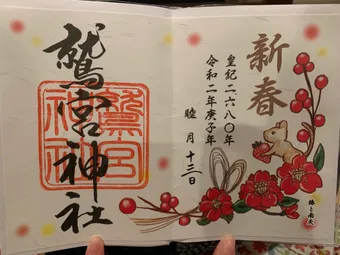 新春
皇紀二六八〇年
令和二年庚子年
睦月十三日
椿と南天
鷲宮神社
鷲宮
神社